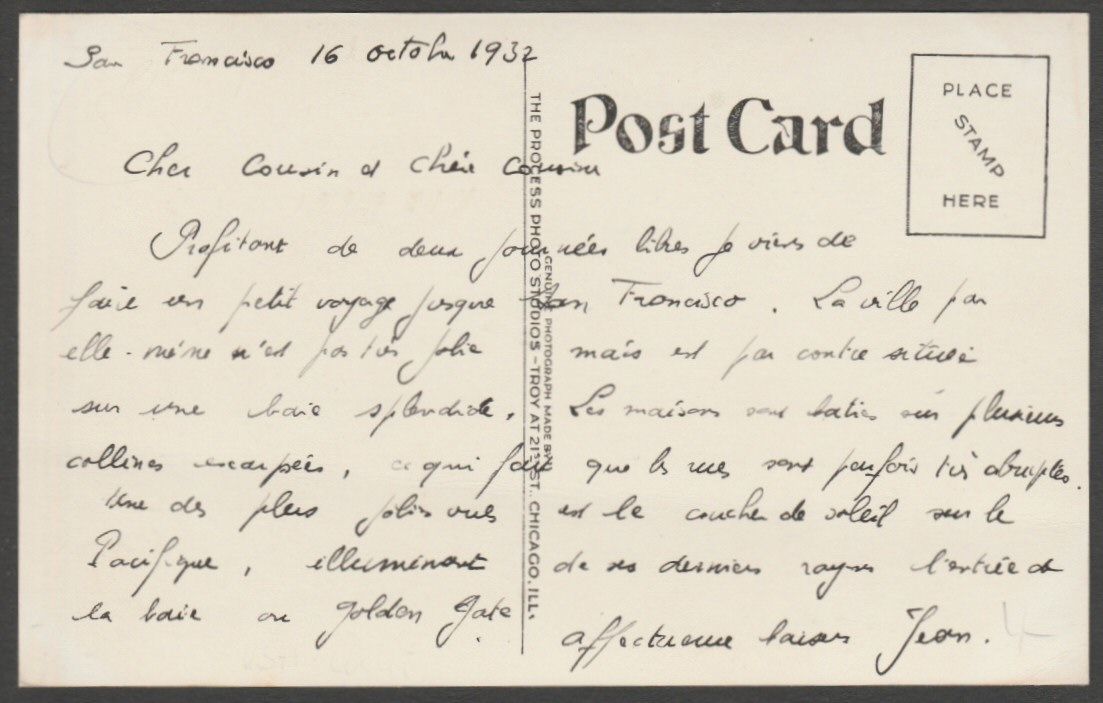 San Francisco 16 octobre 1932
PLACE
STAMP
HERE
Post Card
THE PROCESS PHOTO STUDIOS - TROY AT 21ST ST., CHICAGO, ILL.
GENUINE PHOTOGRAPH MADE BY
Cher Cousin et Chère Cousine
Profitant de deux journées libres je viens de
faire un petit voyage jusque San Francisco. La ville par
elle-même n'est pas très jolie mais est par contre située
sur une baie splendide. Les maisons sont baties sur plusieurs
collines escarpées, ce qui fait que les rues sont parfois très abruptes.
Une des plus jolies vues est le coucher de soleil sur le
Pacifique, illuminant de ses derniers rayons l'entrée de
la baie ou Golden Gate.
affectueux baisers Jean.